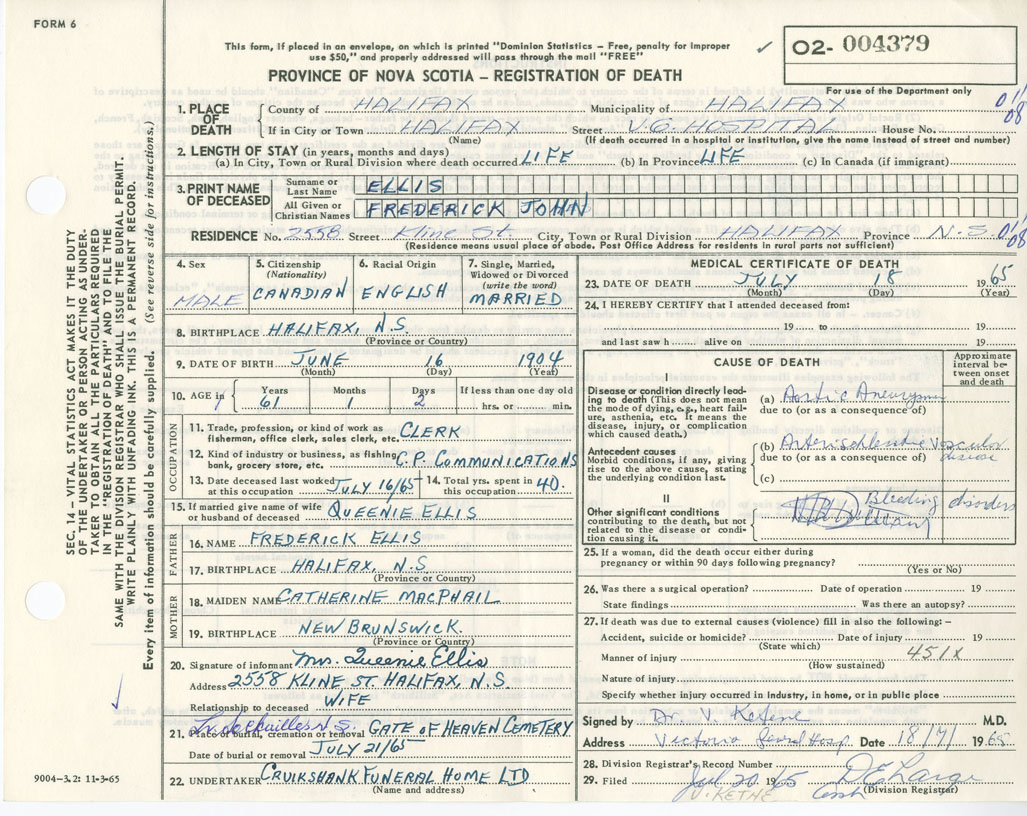 FORM 6
This form, if placed in an envelope, on which is printed "Dominion Statistics – Free, penalty for improper
use $50," and properly addressed will pass through the mail "FREE"
✓ 02- 004379
PROVINCE OF NOVA SCOTIA – REGISTRATION OF DEATH
For use of the Department only
1. PLACE OF DEATH
County of HALIFAX Municipality of HALIFAX
If in City or Town HALIFAX Street V.G. HOSPITAL House No.
(Name) (If death occurred in a hospital or institution, give the name instead of street and number)
2. LENGTH OF STAY (in years, months and days)
(a) In City, Town or Rural Division where death occurred LIFE (b) In Province LIFE (c) In Canada (if immigrant)
3. PRINT NAME OF DECEASED
Surname or Last Name ELLIS
All Given or Christian Names FREDERICK JOHN
RESIDENCE No. 2558 Street Kline St. City, Town or Rural Division HALIFAX Province N.S.
(Residence means usual place of abode. Post Office Address for residents in rural parts not sufficient)
4. Sex MALE
5. Citizenship (Nationality) CANADIAN
6. Racial Origin ENGLISH
7. Single, Married, Widowed or Divorced (write the word) MARRIED
8. BIRTHPLACE HALIFAX, N.S.
(Province or Country)
9. DATE OF BIRTH JUNE 16 1904
(Month) (Day) (Year)
10. AGE in Years 61 Months 1 Days 2 If less than one day old hrs. or min.
OCCUPATION
11. Trade, profession, or kind of work as fisherman, office clerk, sales clerk, etc. CLERK
12. Kind of industry or business, as fishing, bank, grocery store, etc. C.P. COMMUNICATIONS
13. Date deceased last worked at this occupation JULY 16/65
14. Total yrs. spent in this occupation 40.
15. If married give name of wife or husband of deceased QUEENIE ELLIS
FATHER
16. NAME FREDERICK ELLIS
17. BIRTHPLACE HALIFAX, N.S
(Province or Country)
MOTHER
18. MAIDEN NAME CATHERINE MACPHAIL
19. BIRTHPLACE NEW BRUNSWICK.
(Province or Country)
20. Signature of informant Mrs. Queenie Ellis
Address 2558 KLINE ST. HALIFAX, N.S.
Relationship to deceased WIFE
21. Place of burial, cremation or removal GATE OF HEAVEN CEMETERY
Date of burial or removal JULY 21/65
22. UNDERTAKER CRUIKSHANK FUNERAL HOME LTD
(Name and address)
MEDICAL CERTIFICATE OF DEATH
23. DATE OF DEATH JULY 18 1965
(Month) (Day) (Year)
24. I HEREBY CERTIFY that I attended deceased from:
19 to 19
and last saw h alive on 19
CAUSE OF DEATH
Approximate interval between onset and death
I
Disease or condition directly leading to death (This does not mean the mode of dying, e.g., heart failure, asthenia, etc. It means the disease, injury, or complication which caused death.)
(a) Aortic Aneurysm
due to (or as a consequence of)
Antecedent causes
Morbid conditions, if any, giving rise to the above cause, stating the underlying condition last.
(b) vascular disease
due to (or as a consequence of)
(c)
II
Other significant conditions
contributing to the death, but not related to the disease or condition causing it.
Bleeding disorder
25. If a woman, did the death occur either during pregnancy or within 90 days following pregnancy?
(Yes or No)
26. Was there a surgical operation? Date of operation 19
State findings Was there an autopsy?
27. If death was due to external causes (violence) fill in also the following: –
Accident, suicide or homicide? Date of injury 19
(State which)
Manner of injury 451X
(How sustained)
Nature of injury
Specify whether injury occurred in industry, in home, or in public place
Signed by Dr. V. Kethe M.D.
Address Victoria Hosp. Date 18/7/ 19
28. Division Registrar's Record Number
29. Filed Jul 20 1965
(Division Registrar)
V. KETHE
SEC. 14 – VITAL STATISTICS ACT MAKES IT THE DUTY
OF THE UNDERTAKER OR PERSON ACTING AS UNDER-
TAKER TO OBTAIN ALL THE PARTICULARS REQUIRED
IN THE "REGISTRATION OF DEATH" AND TO FILE THE
SAME WITH THE DIVISION REGISTRAR WHO SHALL ISSUE THE BURIAL PERMIT.
WRITE PLAINLY WITH UNFADING INK. THIS IS A PERMANENT RECORD.
Every item of information should be carefully supplied. (See reverse side for instructions.)
9004-3.2: 11-3-65